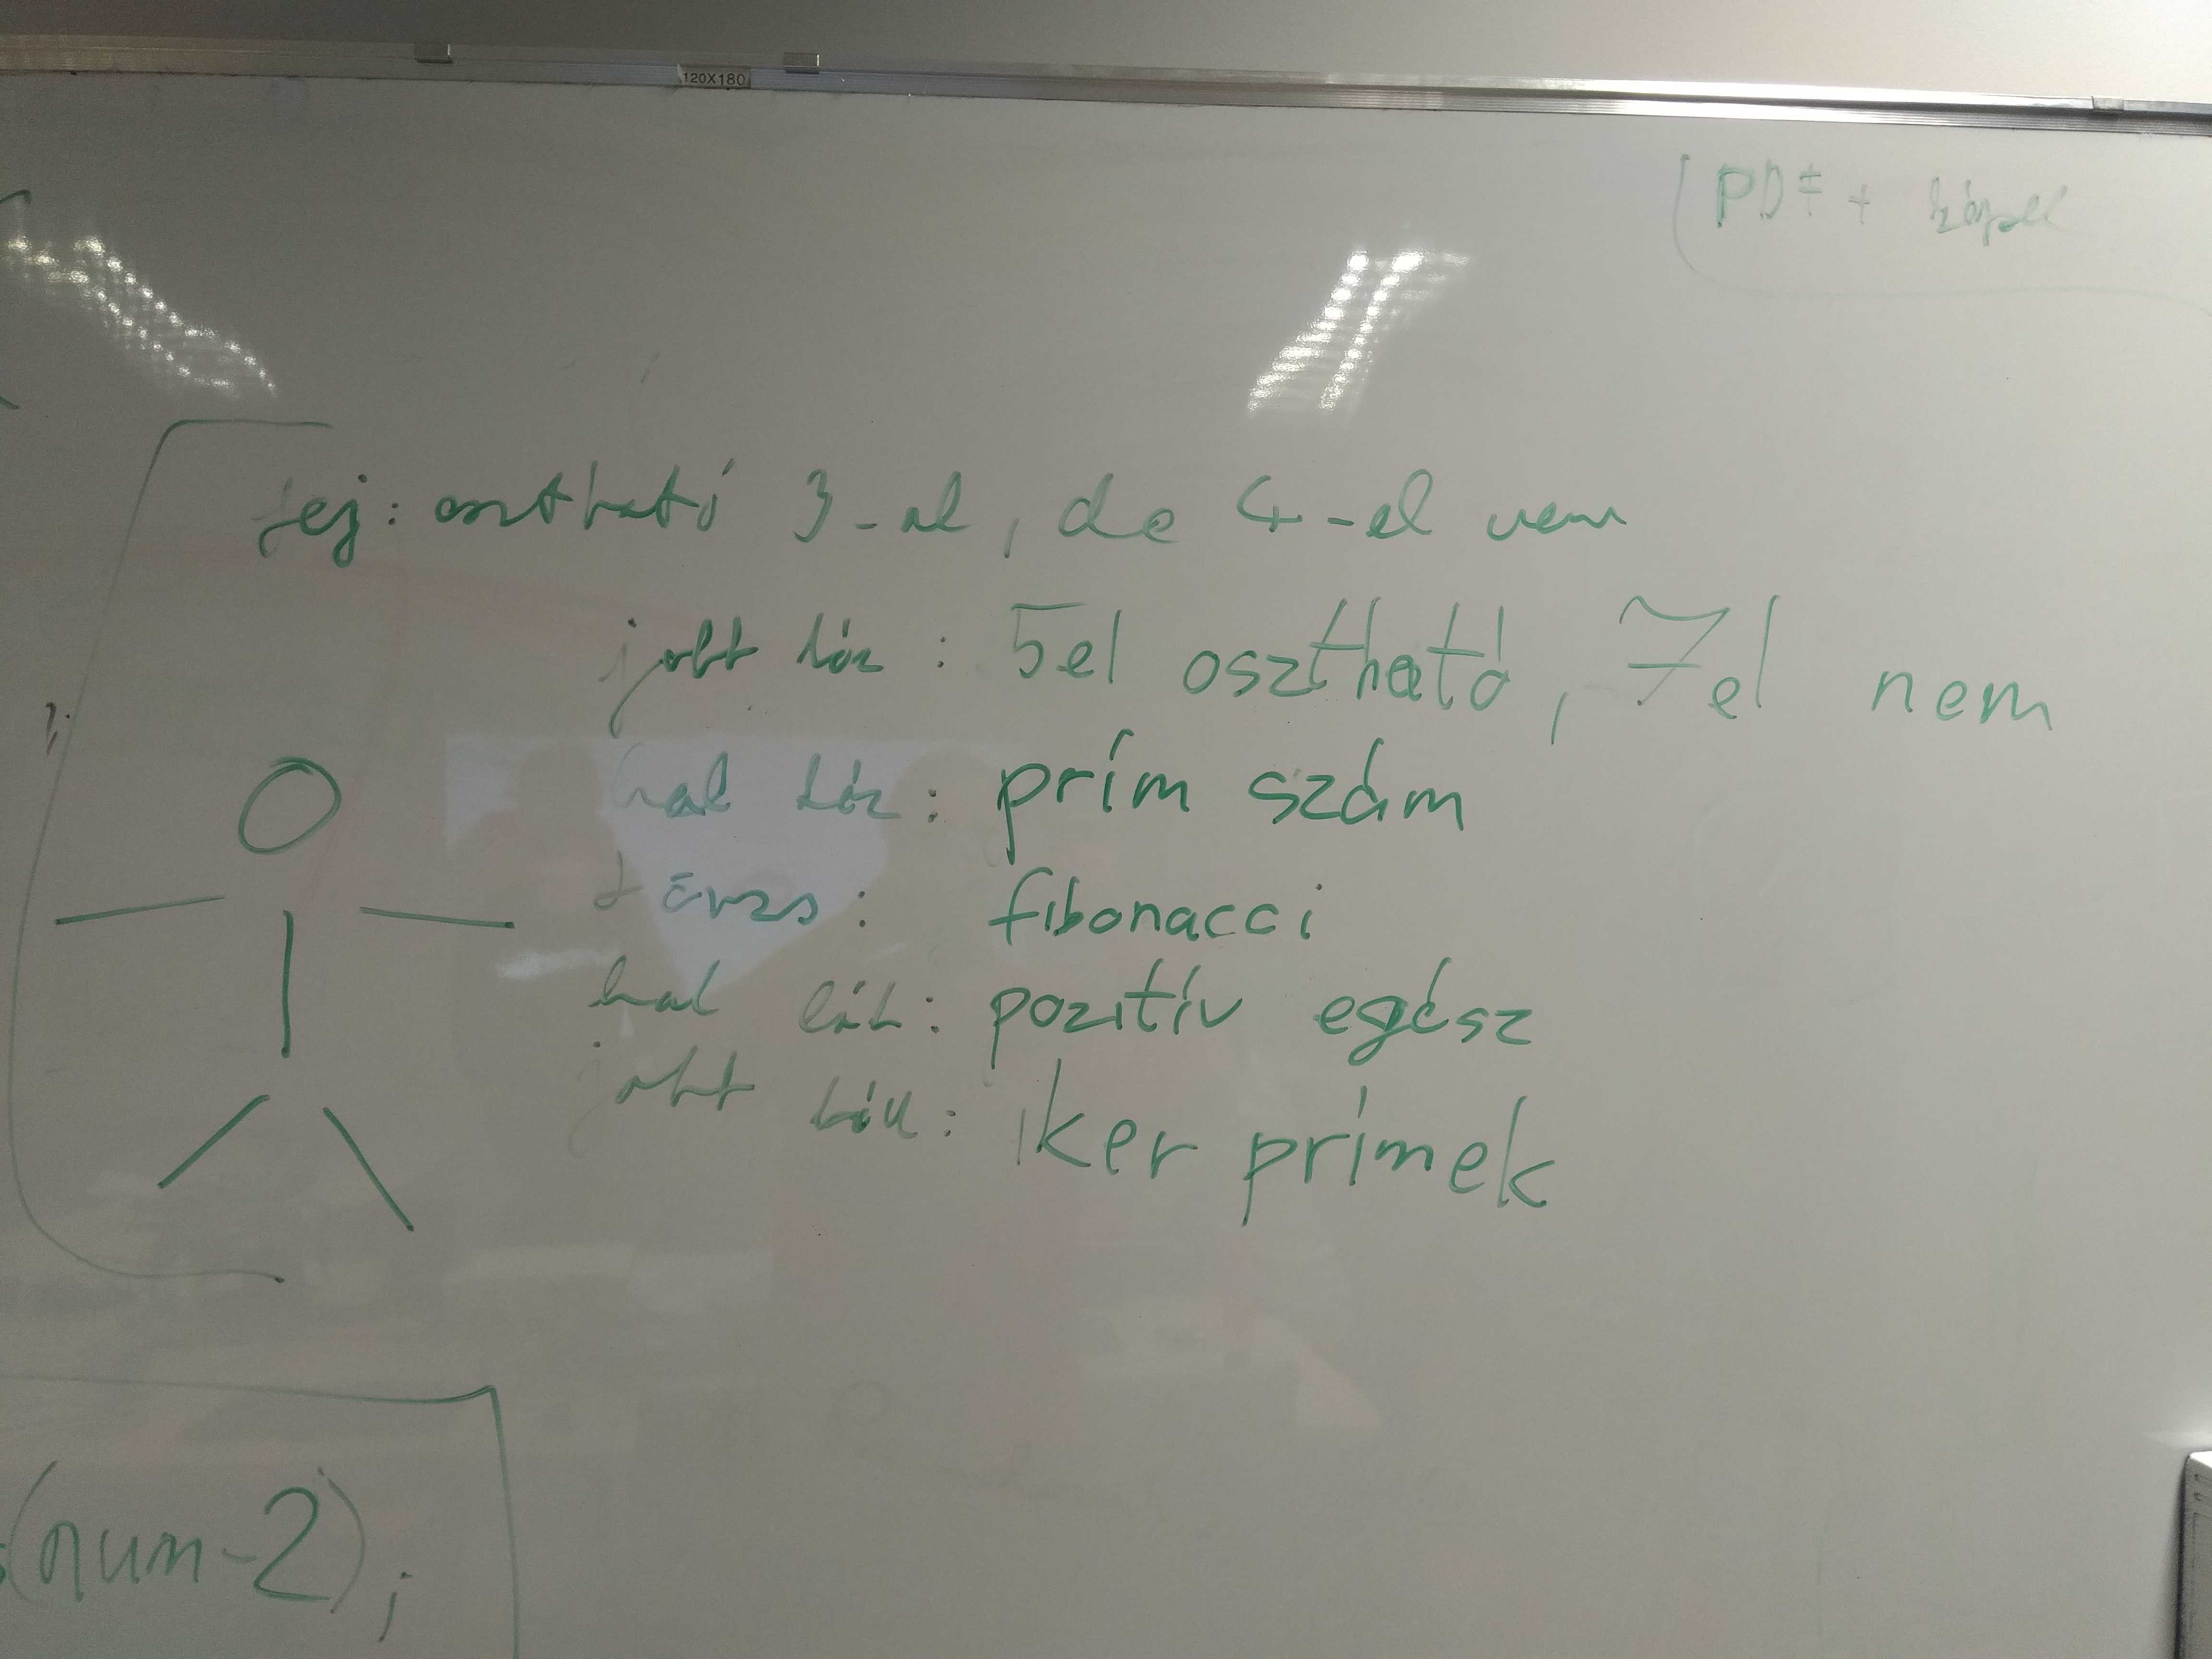 120X180
PDF +
fej: osztható 3-al, de 4-el nem
jobb kéz: 5el osztható, 7el nem
bal kéz: prím szám
törzs: fibonacci
bal láb: pozitív egész
jobb láb: iker prímek
(num-2);